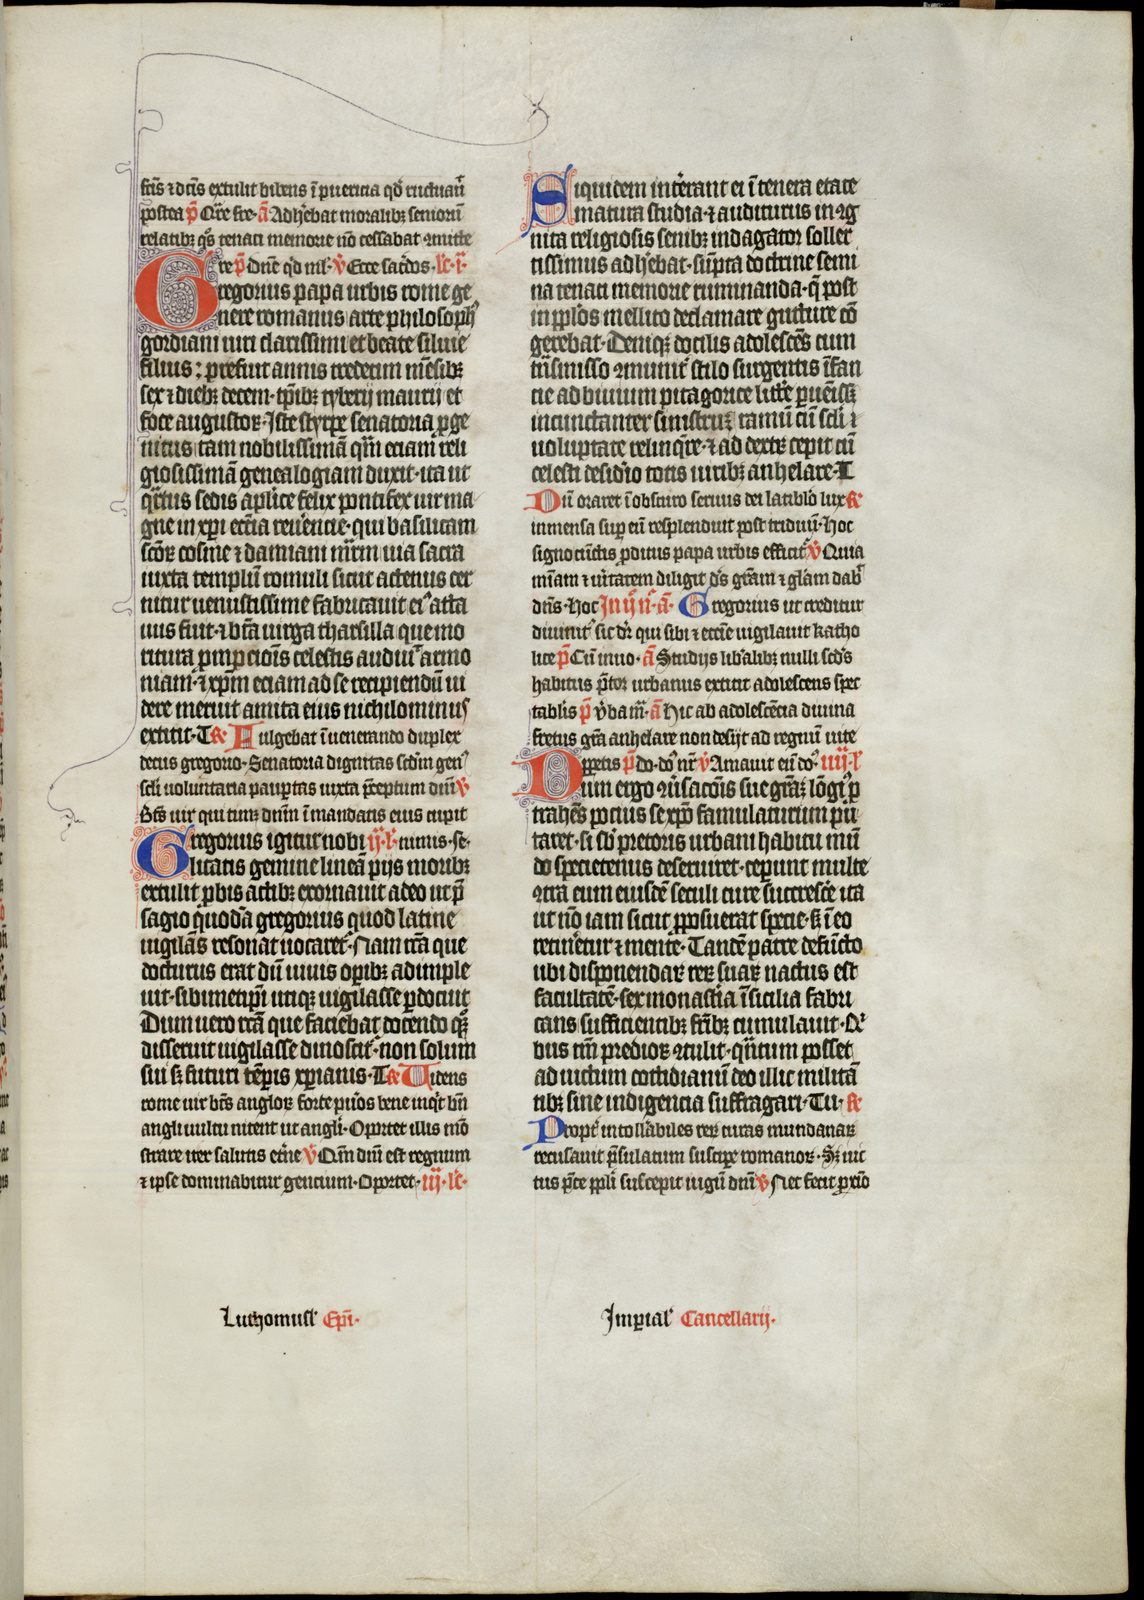 scĩs ⁊ dcĩs extulit bibens ĩ puericia qđ ructuaũ
postea p̃ Qr̃e fre· ã Adh̃ebat moralibꝫ senioru᷑
relatibꝫ qͦs tenaci memorie nõ cessabat ꝯmitte
re p̃ Dñe qͥd ml̃· v̉ Ecce sac̉dos· lc̃·i᷑·
Gregorius papa urbis rome ge
nere romanus arte philosoph᷒
gordiani viri clarissimi et beate siluie
filius : prefuit annis tredecim m̃esibꝫ
sex ⁊ diebꝫ decem· tp̃ibꝫ tyberij mauricij et
foce augustoꝝ· Iste styrpe senatoria ꝓge
nitus tam nobilissimã qͣm eciam reli
giosissimã genealogiam duxit· ita ut
qͣrtus sedis apl̃ice felix pontifex vir ma
gne in xpi eccl̃ia reũencie· qui basilicam
scõꝝ cosme ⁊ damiani mr̃m via sacra
iuxta templu᷑ romuli sicut actenus cer
nitur venustissime fabricauit ei᷒ atta
uus fiut· ⁊ bt̃a virga tharsilla que mo
ritura ꝓ mꝑcioĩs celestis audiuit armo
niam· ⁊ xp̃m eciam ad se recipiendu᷑ vi
dere meruit amita eius nichilominus
extitit· T ꝶ Fulgebat ĩ venerando duplex
decus gregorio· Senatoria dignitas scd̃m gen᷒
scl̃i voluntaria paup̃tas iuxta p̃ceptum dñi v̉
Bt̃s vir qui timꝫ dñm ĩ mandatis eius cupit
Gregorius igitur nobi ij·l᷑· tumis· se·
litatis gemine lineã pijs moribꝫ
extulit ꝓbis actibꝫ exornauit adeo ut p̃
sagio quodã gregorius quod latine
vigilãs resonat vocaret᷑· Nam rc̃a que
docturus erat du᷑ viuis oꝑibꝫ adimple
uit· sibimetip̃i utiqꝫ vigilasse ꝑdocuit
Dum vero rc̃a que faciebat docendo qͦꝫ
disseruit vigilasse dinoscit᷑· non solum
sui sꝫ futuri tẽpis xp̃ianis· T ꝶ Videns
rome vir bt̃s angloꝝ forte pu̾os bene inqͥt bñ
angli vultu nitent ut angli· Oportet illis mõ
strare iter salutis et̾ne v̉ Qm̃ dñi est regnum
⁊ ipse dominabitur gencium· Oportet· iij·lc̃·
Siquidem inh̾erant ei ĩ tenera etate
matura studia· ⁊ auditurus in ꝛg
nita religiosis senibꝫ indagator soller
tissimus adh̾ebat· su᷑pta doctrine semi
na tenaci memorie ruminanda· q̃ post
in pplõs mellito declamare gutture cõ
gerebat· Deniqꝫ docilis adolescẽs cum
tr̃smisso ꝯmunit᷑ stilo surgentis ĩfan
cie ad biuium pitagorice litt̾e ꝑuẽissꝫ
incunctanter sinistruꝫ ramu᷑ cu᷑ scl̃i ⁊
voluptate relinqͣre· ⁊ ad dextꝝ cepit cu᷑
celesti desid̾io totis viribꝫ anhelare· T
Du᷑ oraret ĩ obscuro seruus dei latibulo lux ꝶ
inmensa suꝑ eu᷑ resplenduit post triduu᷑· Hoc
signo cũctis ꝓditus papa urbis efficit᷑ v̉ Quia
mi᷑am ⁊ v̾itatem diligit ds̃ gr̃am ⁊ gl̃am dab᷑
dñs· Hoc In ij n̊· ã· Gregorius ut creditur
diuinit᷒ sic dr̃ qui sibi ⁊ eccl̃ie vigilauit katho
lice p̃ Cu᷑ inuo· ã Studijs lib̾alibꝫ nulli scd̾s
habitus p̃tor urbanus extitit adolescens spec
tabĩlis p̃ v̾ba m̃· ã Hic ab adolescẽcia diuina
fretus gr̃a anhelare non desijt ad regnu᷑ vite
ꝑpetis p̃ do· do᷒ nr̃ v̉ Amauit eu᷑ do᷒· iiij·l᷑
Dum ergo ꝯu̾sacoĩs sue gr̃aꝫ lõgi᷒ ꝓ
trahẽs pocius se xp̃o famulaturum pu
taret· si sb̾ pretoris urbani habitu mũ
do specietenus deseruiret· ceperunt multe
ꝯtra eum eiusdẽ seculi cure succrescẽ ita
ut nõ iam sicut ꝓposuerat specie· sꝫ ĩ eo
retin̾etur ⁊ mente· Tandẽ patre defũcto
ubi disponendaꝝ reꝝ suaꝝ nactus est
facultatẽ· sex monast̾ia ĩ sicilia fabri
cans sufficientibꝫ fr̃ibꝫ cumulauit· Qͥ
bus tm̃ predioꝝ ꝯtulit· qͣntum posset
ad victum cothidianu᷑ deo illic militã
tibꝫ sine indigencia suffragari· Tu· ꝶ
Propt̾ intoll̾abiles reꝝ curas mundanaꝝ
recusauit p̃sulatum suscipe romanoꝝ· Sꝫ vic
tus p̃ce ppl̃i suscepit iugu᷑ dñi v̉ Nec fecit ꝓxiõ
Luthomusl᷑ Ep̃i·
Imꝑial᷒ Cancellarij·